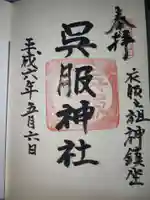 奉拝
衣服之祖神鎮座
呉服神社
平成六年五月六日